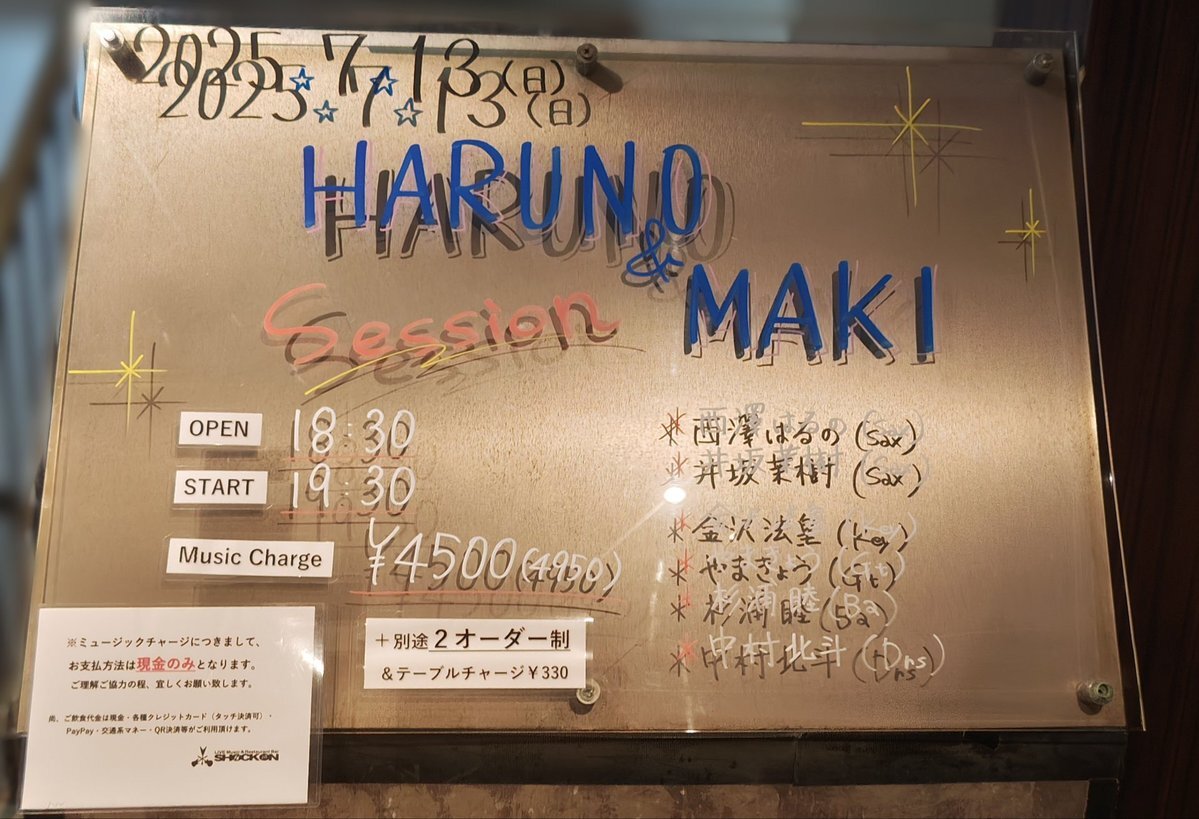 2025☆7☆13(日)
HARUNO
&
MAKI
Session
OPEN 18:30
START 19:30
Music Charge ¥4500(4950)
+別途2オーダー制
&テーブルチャージ¥330
*西澤はるの(Sax)
*井坂茉樹(Sax)
*金沢法皇(Key)
*やまきょう(Gt)
*杉浦睦(Ba)
*中村北斗(Drs)
※ミュージックチャージにつきまして、
お支払方法は現金のみとなります。
ご理解ご協力の程、宜しくお願い致します。
尚、ご飲食代金は現金・各種クレジットカード(タッチ決済可)・
PayPay・交通系マネー・QR決済等がご利用頂けます。
LIVE Music & Restaurant Bar
SHOCKON